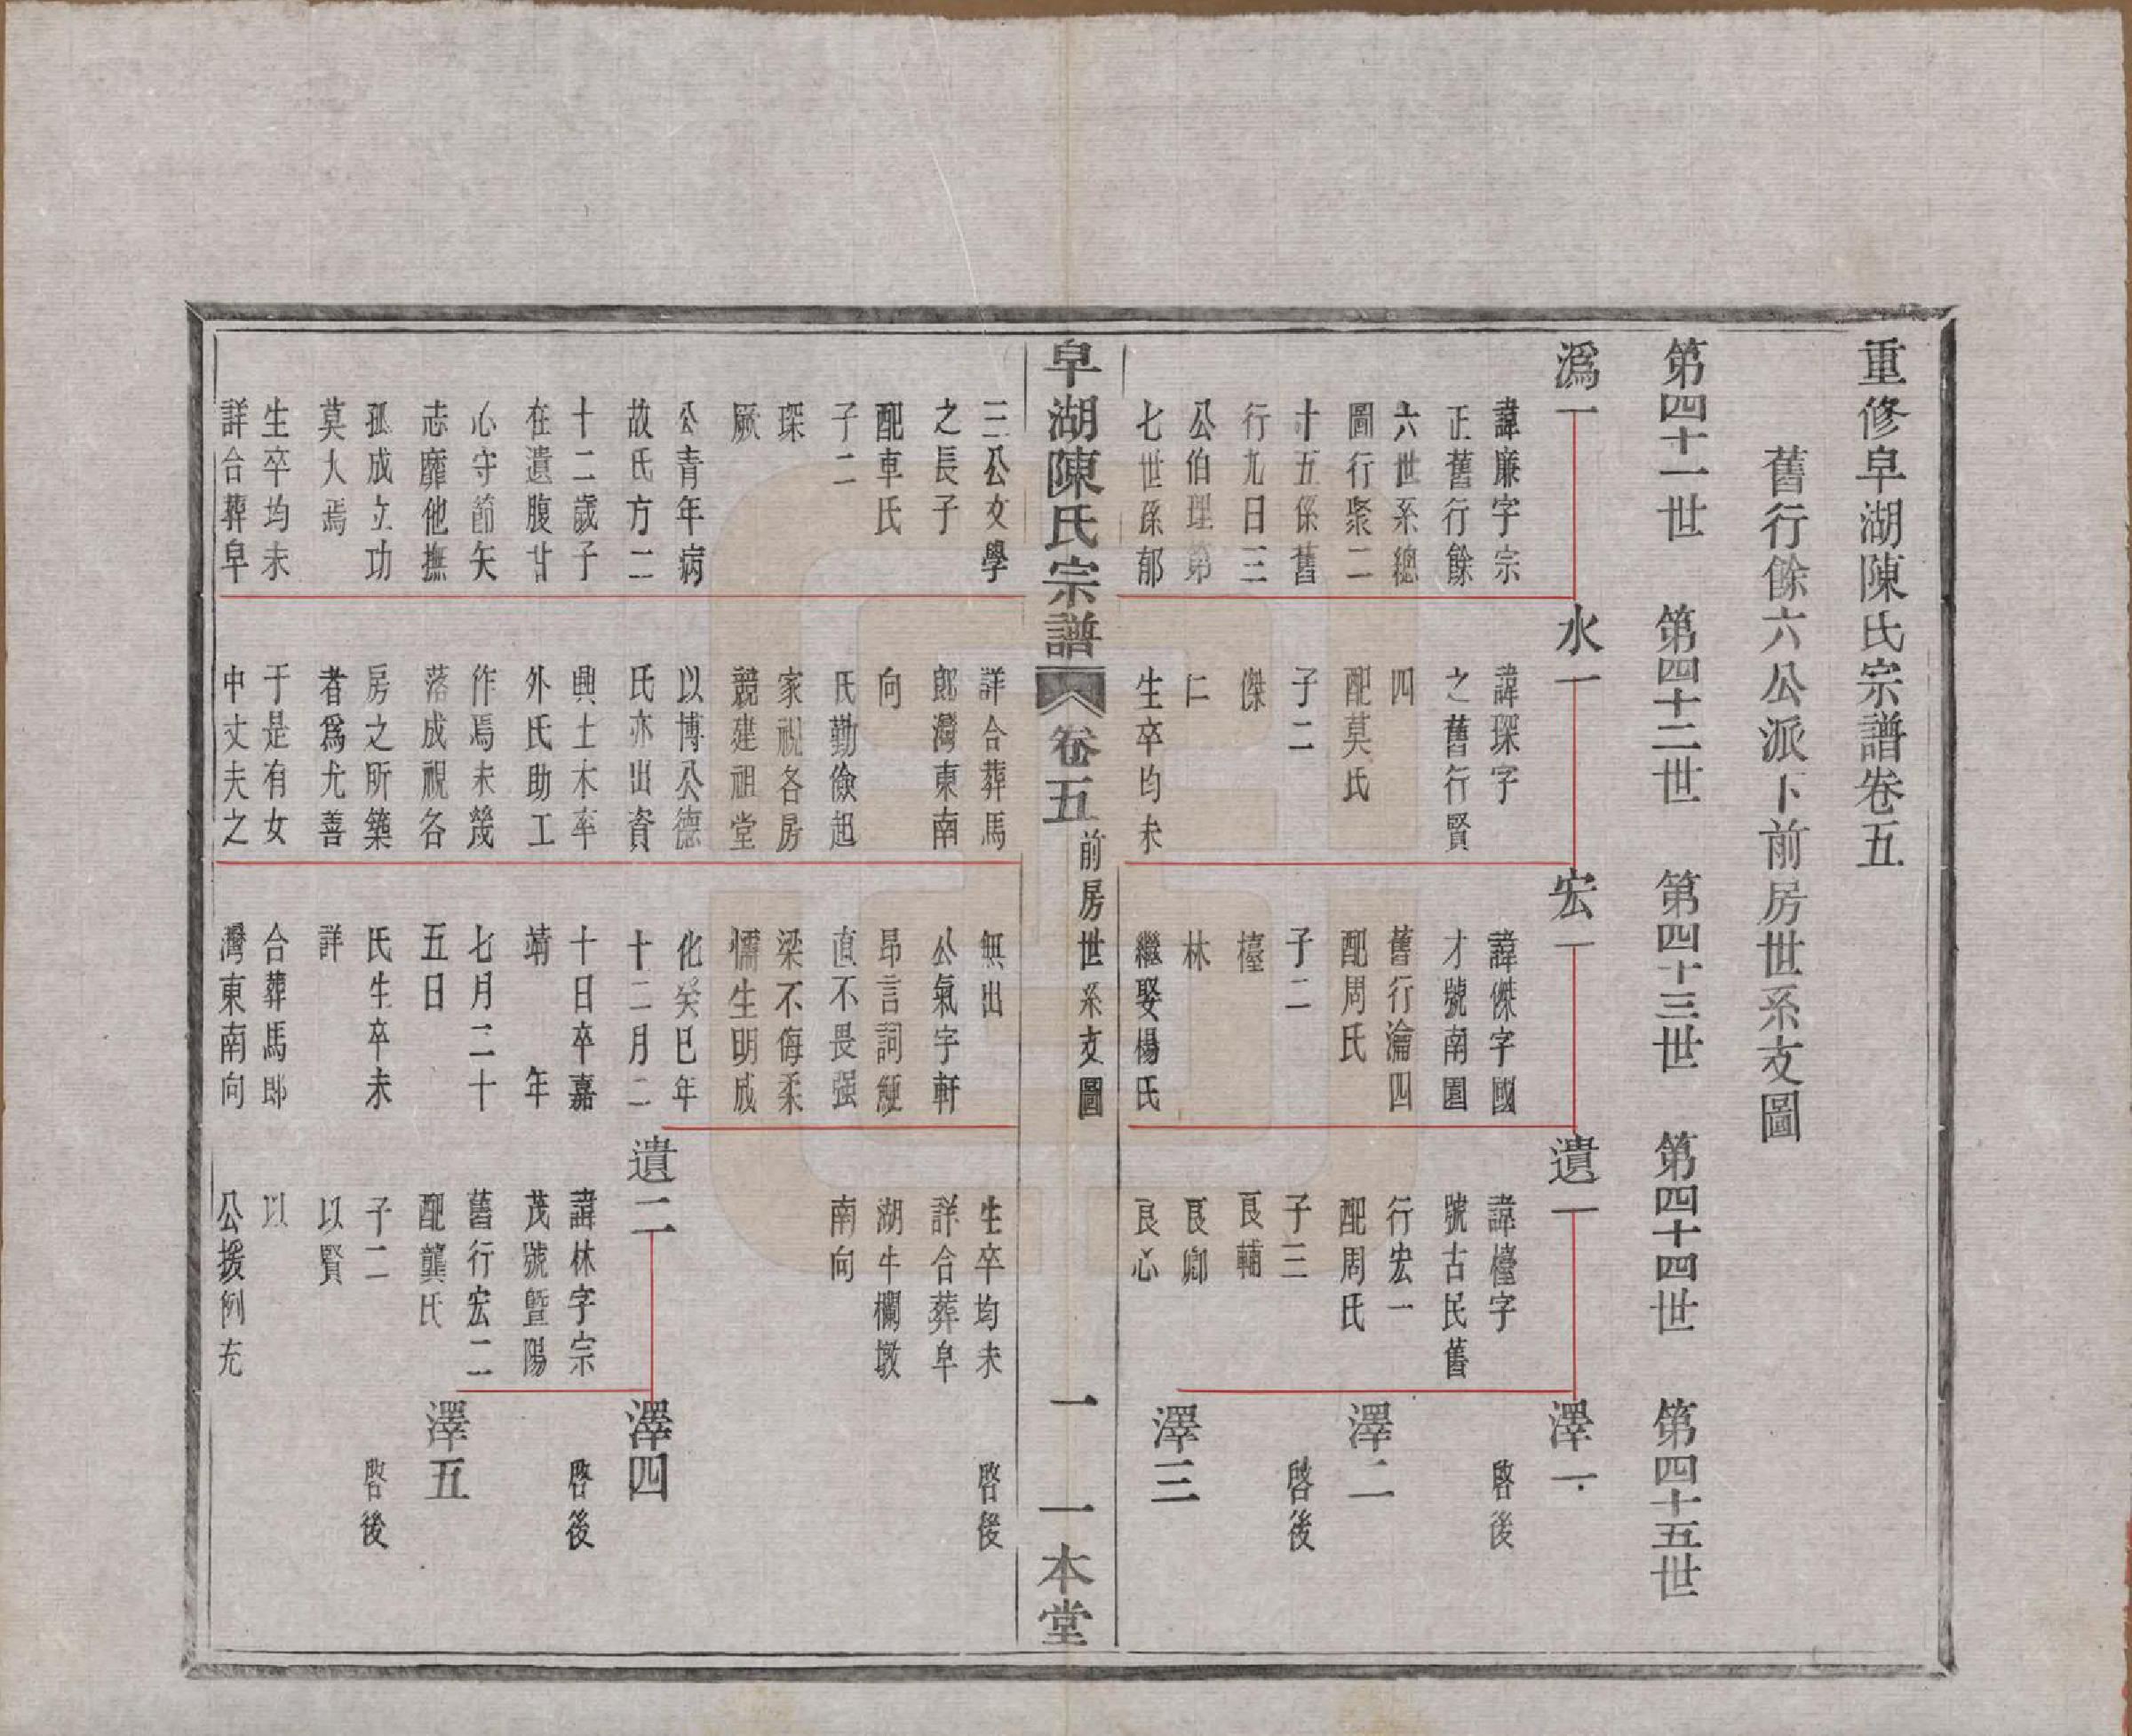 重修皐湖陳氏宗譜卷五
舊行餘六公派下前房世系支圖
第四十一世
第四十二世
第四十三世
第四十四世
第四十五世
潙一
諱廉字宗
正舊行餘
六世系總
圖行聚二
十五係舊
行九日三
公伯理第
七世孫郁
三公文學
之長子
配車氏
子二
琛
厥
公青年病
故氏方二
十二歲子
在遺腹甘
心守節矢
志靡他撫
孤成立功
莫大焉
生卒均未
詳合葬皐
水一
諱琛字
之舊行賢
四
配莫氏
子二
傑
仁
生卒均未
詳合葬馬
郎灣東南
向
氏勤儉起
家視各房
競建祖堂
以博公德
氏亦出資
興土木率
外氏助工
作焉未幾
落成視各
房之所築
者爲尤善
于是有女
中丈夫之
宏一
諱傑字國
才號南園
舊行瀹四
配周氏
子二
檯
林
繼娶楊氏
無出
公氣宇軒
昂言詞經
直不畏强
梁不侮柔
懦生明成
化癸巳年
十二月二
十日卒嘉
靖 年
七月二十
五日
氏生卒未
詳
合葬馬郎
灣東南向
遺一
諱檯字
號古民舊
行宏一
配周氏
子三
良輔
良卿
良心
生卒均未
詳合葬皐
湖牛欄墩
南向
遺二
諱林字宗
茂號曁陽
舊行宏二
配龔氏
子二
以賢
以
公援例充
澤一
啓後
澤二
啓後
澤三
啓後
澤四
啓後
澤五
啓後
皐湖陳氏宗譜
卷五
前房世系支圖
一
一本堂